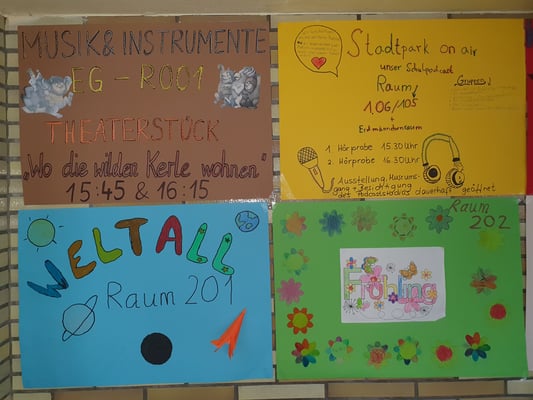 MUSIK & INSTRUMENTE
EG - R001
THEATERSTÜCK
„Wo die wilden Kerle wohnen"
15:45 & 16:15
Stadtpark on air
unser Schulpodcast
Raum
106/105
+
1. Hörprobe 15.30 Uhr
2. Hörprobe 16.30 Uhr
Ausstellung,
dauerhaft geöffnet
WELTALL
Raum 201
Raum
202
Frühling